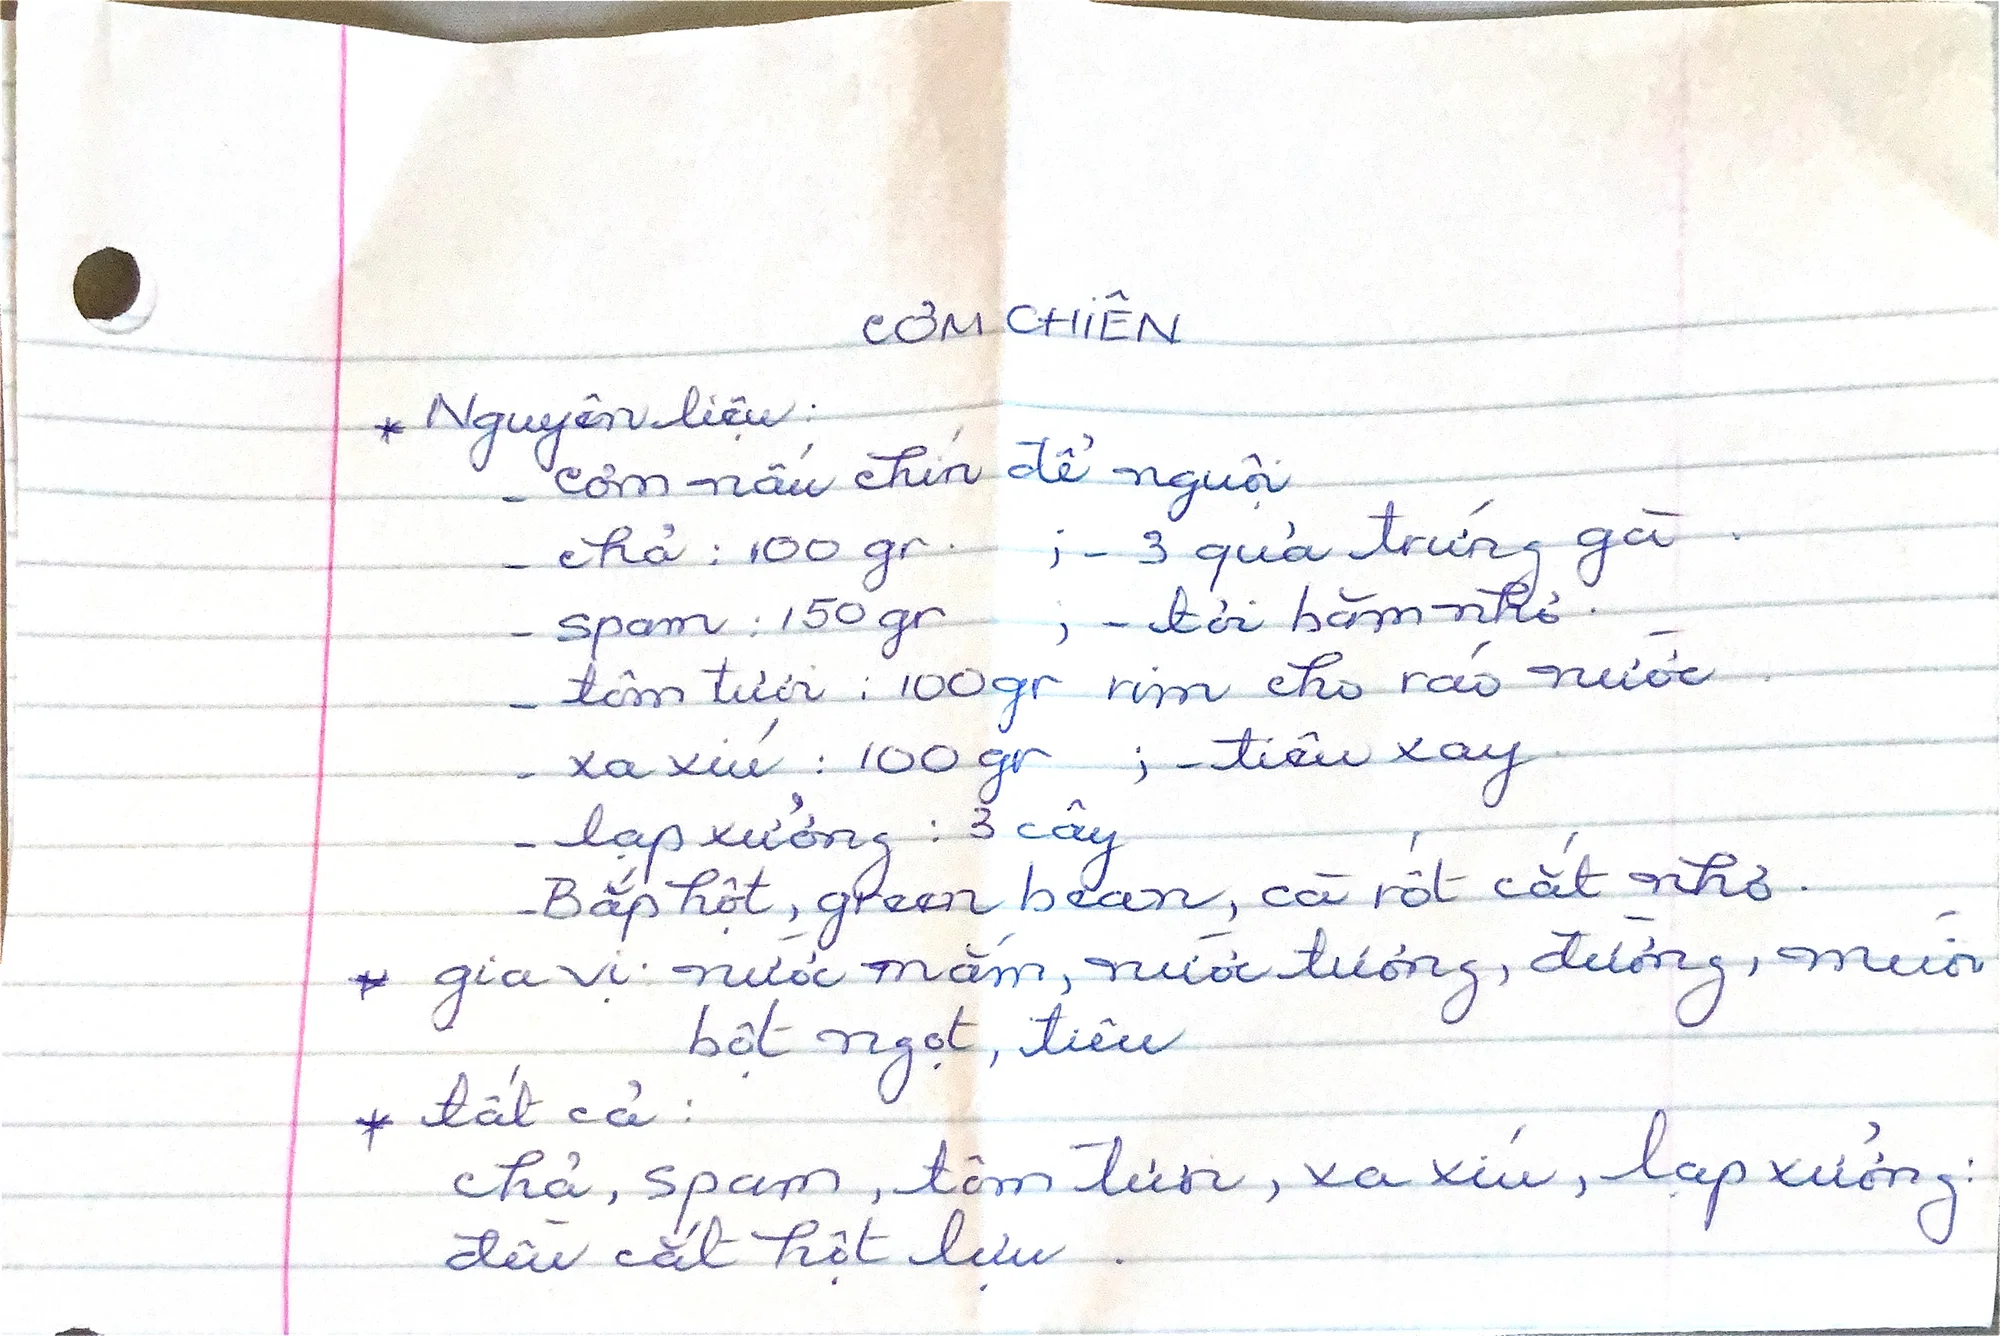 CƠM CHIÊN
* Nguyên liệu:
- cơm nấu chín để nguội
- chả : 100 gr. ; - 3 quả trứng gà.
- spam : 150 gr ; - tỏi băm nhỏ.
- tôm tươi : 100gr rim cho ráo nước.
- xa xíu : 100 gr ; - tiêu xay.
- lạp xưởng : 3 cây
- Bắp hột, green bean, cà rốt cắt nhỏ.
* gia vị: nước mắm, nước tương, đường, muối
bột ngọt, tiêu
* tất cả :
chả, spam, tôm tươi, xa xíu, lạp xưởng:
đều cắt hột lựu.